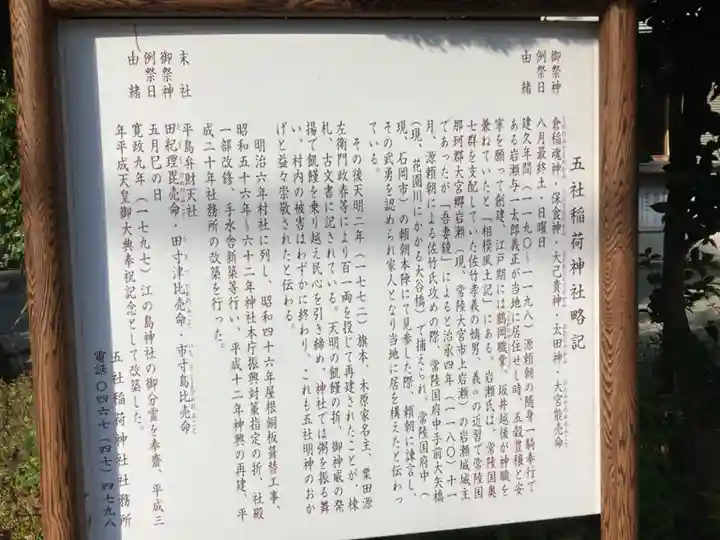 五社稲荷神社略記
御祭神　倉稲魂神・保食神・大己貴神・太田神・大宮能売命
例祭日　八月最終土・日曜日
由緒　建久年間（一一九〇～一一九八）源頼朝の随身一騎奉行で
ある岩瀬与一太郎義正が当地に居住せし時、五穀豊穣と安
寧を願って創建、江戸期には鶴岡職掌、坂井越後が神職を
兼ねていたと『相模風土記』にある。岩瀬氏は、常陸国奥
七群を支配していた佐竹孝義の嫡男、義
の近習で常陸国
那珂郡大宮郷岩瀬（現、常陸大宮市上岩瀬）の岩瀬城城主
であったが『吾妻鏡』によると治承四年（一一八〇）十一
月、源頼朝による佐竹氏攻めの際、常陸国府中手前大矢橋
（現、花園川にかかる大谷橋）で捕えられ、常陸国府中（
現、石岡市）の頼朝本陣にて見参した際、頼朝に諫言し、
その武勇を認められ家人となり当地に居を構えたと伝わっ
ている。
その後天明二年（一七七二）旗本、木原家名主、栗田源
左衛門政春等により百一両を投じて再建されたことが、棟
札、古文書に記されている。天明の飢饉の折、御神威の発
揚で飢饉を乗り越え民心を引き締め、神社では粥を振る舞
い、村内の被害はわずかに終わり、これも五社明神のおか
げと益々崇敬されたと伝わる。
明治六年村社に列し、昭和四十六年屋根銅板葺替工事、
昭和五十六年～六十二年神社本庁振興対策指定の折、社殿
一部改修、手水舎新築等行い、平成十二年神輿の再建、平
成二十年社務所の改築を行った。
末社　平島弁財天社
御祭神　田紀理毘売命・田寸津比売命・市寸島比売命
例祭日　五月巳の日
由緒　寛政九年（一七九七）江の島神社の御分霊を奉斎、平成三
年平成天皇御大典奉祝記念として改築した。
五社稲荷神社社務所
電話〇四六七（四七）四七九八